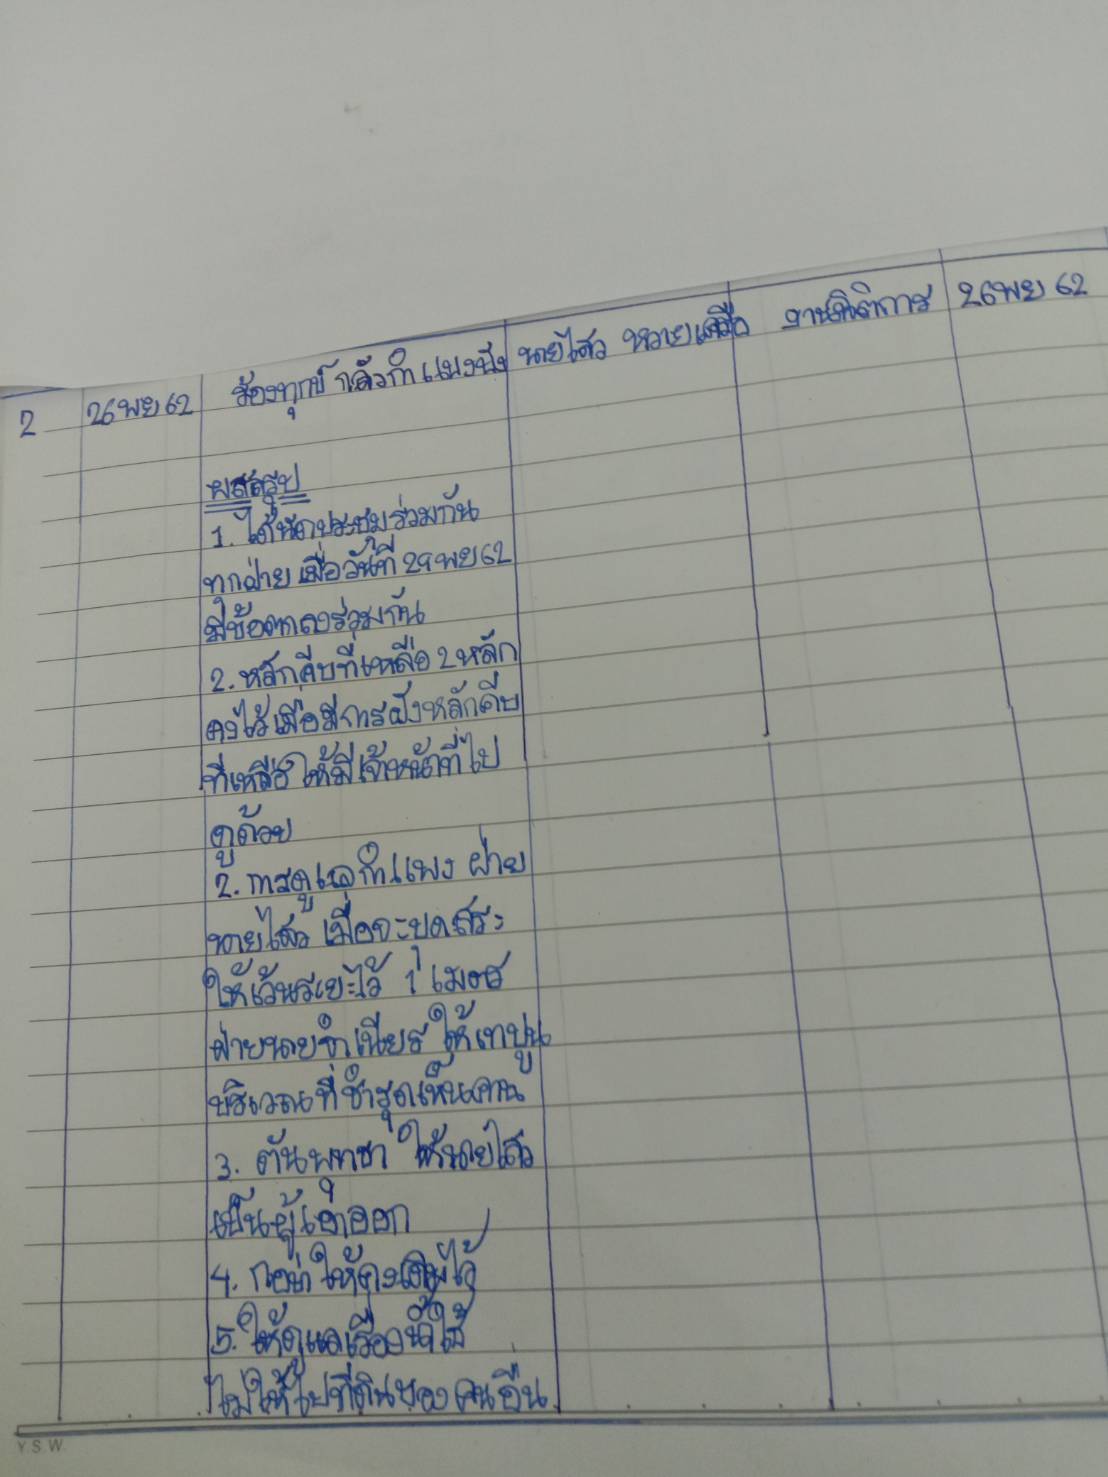 2 26 พย 62 ร้องทุกข์ กลัวกำแพงพัง นายไสว หวายเครือ งานนิติการ 26 พย 62
ผลสรุป
1. ได้นัดประชุมร่วมกัน
ทุกฝ่าย เมื่อวันที่ 29 พย 62
มีข้อตกลงร่วมกัน
2. หลักคีบที่เหลือ 2 หลัก
คงไว้ เมื่อมีการฝังหลักคีบ
ที่เหลือ ให้มีเจ้าหน้าที่ไป
ดูด้วย
2. การดูแลกำแพง ฝ่าย
นายไสว เมื่อจะขุดสระ
ให้เว้นระยะไว้ 1 เมตร
ฝ่ายนายจำเนียร ให้เทปูน
บริเวณที่ชำรุดเห็นคาน
3. ต้นพุทชา ให้นายไสว
เป็นผู้เอาออก
4. กอบัว ให้คงเดิมไว้
5. ให้ดูแลเรื่องน้ำใช้
ไม่ให้ไปที่ดินของคนอื่น
Y.S.W.